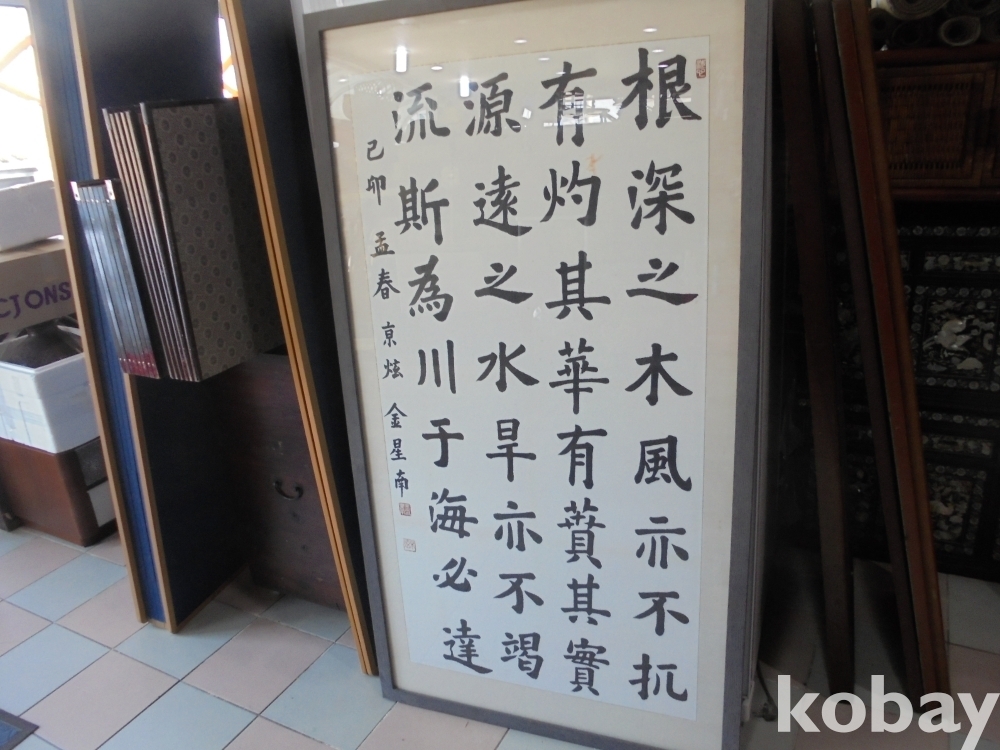 根深之木風亦不扤
有灼其華有蕡其實
源遠之水旱亦不竭
流斯為川于海必達
己卯 孟春 京炫 金星南
CJ ONS
kobay